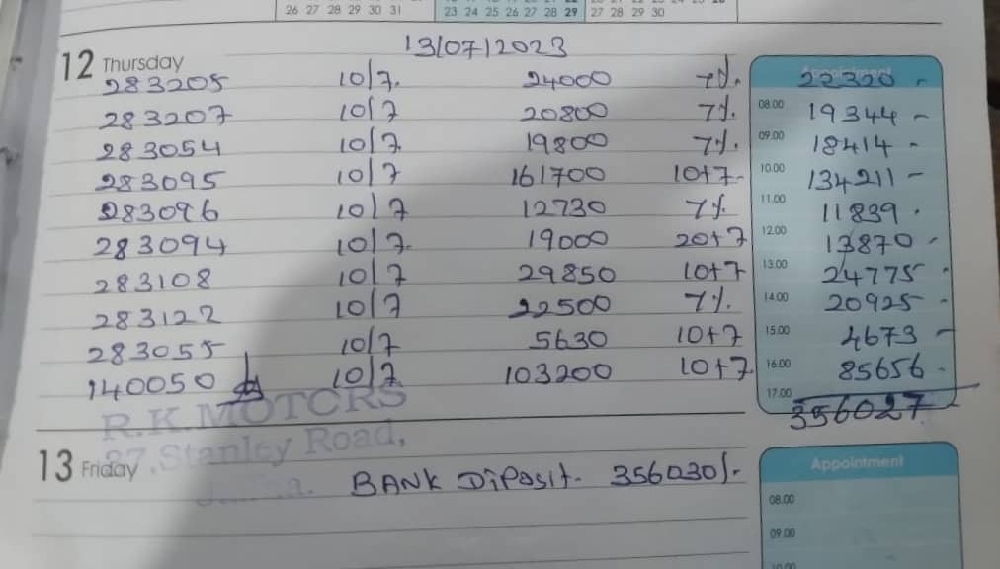 26 27 28 29 30 31
23 24 25 26 27 28 29
27 28 29 30
13/07/2023
12 Thursday
283205 10/7. 24000 7%. 22320 -
283207 10/7 20800 7%. 08.00 19344 -
283054 10/7 19800 7%. 09.00 18414 -
283095 10/7 161700 10+7 10.00 134211 -
283096 10/7 12730 7%. 11.00 11839 -
283094 10/7. 19000 20+7 12.00 13870 -
283108 10/7 29850 10+7 13.00 24775 -
283122 10/7 22500 7%. 14.00 20925 -
283055 10/7 5630 10+7 15.00 4673 -
140050 10/7 103200 10+7 16.00 85656 -
17.00 356027
R.K.MOTORS
Stanley Road,
13 Friday BANK Diposit. 356030/-
Appointment
08.00
09.00